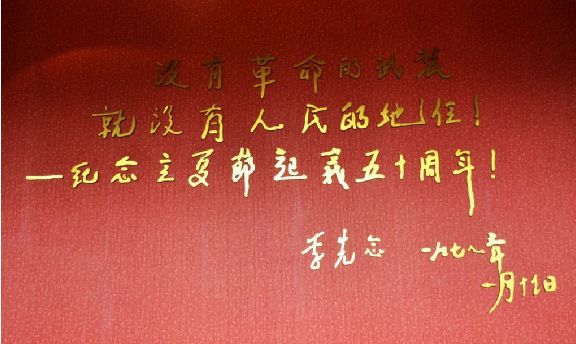 没有革命的武装
就没有人民的地位!
—纪念立夏节起义五十周年!
李先念 一九七年
一月日